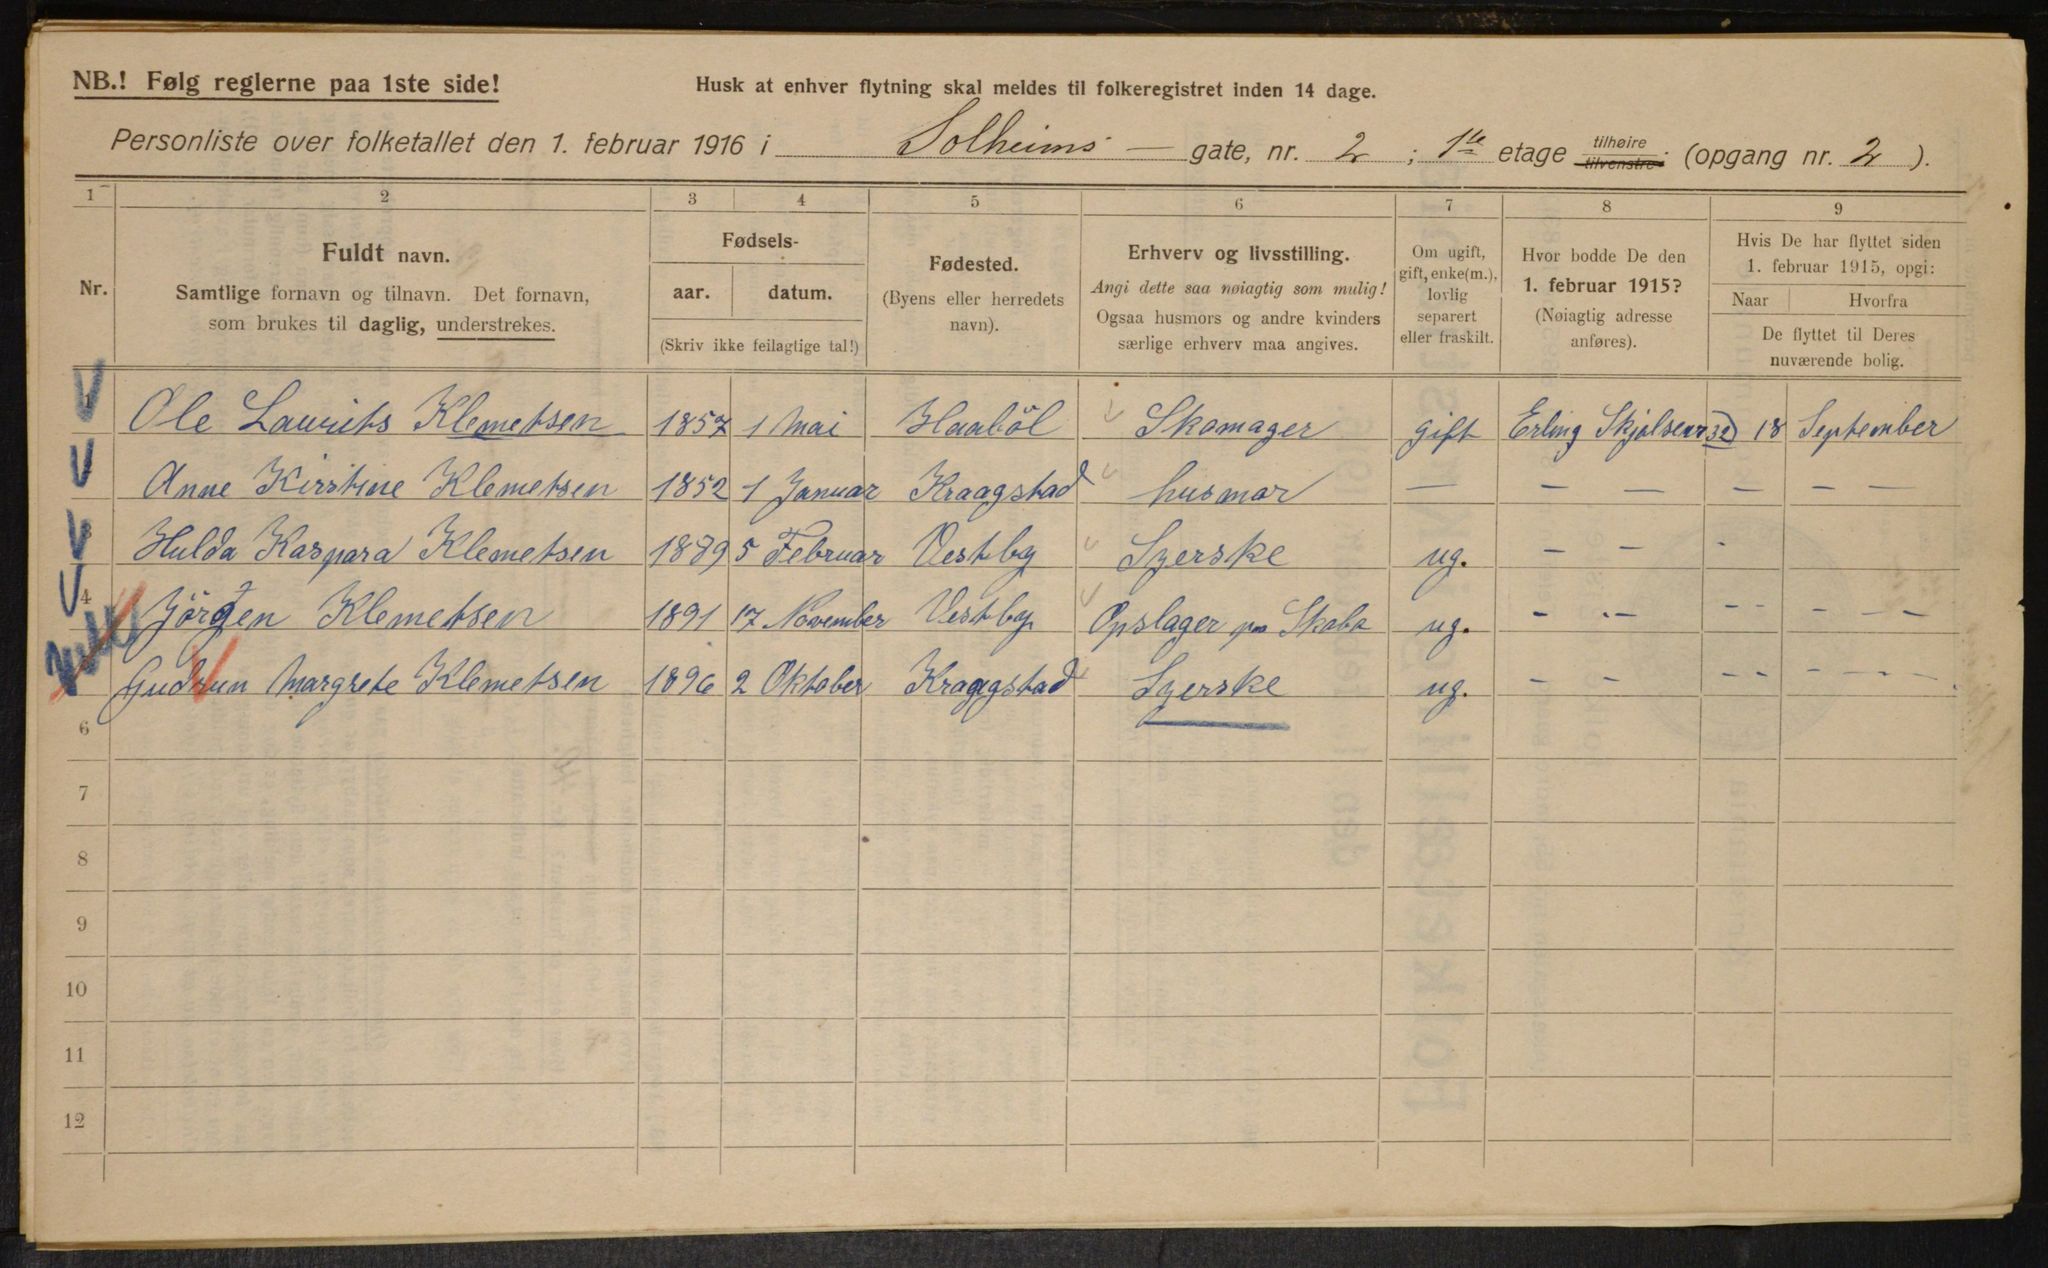 NB.! Følg reglerne paa 1ste side!
Husk at enhver flytning skal meldes til folkeregistret inden 14 dage.
Personliste over folketallet den 1. februar 1916 i Solheims — gate, nr. 2 ; 1ste etage tilhøire tilvenstre (opgang nr. 2 ).
1 2 3 4 5 6 7 8 9
Nr.
Fuldt navn.
Samtlige fornavn og tilnavn. Det fornavn,
som brukes til daglig, understrekes.
Fødsels-
aar. datum.
(Skriv ikke feilagtige tal!)
Fødested.
(Byens eller herredets
navn).
Erhverv og livsstilling.
Angi dette saa nøiagtig som mulig!
Ogsaa husmors og andre kvinders
særlige erhverv maa angives.
Om ugift,
gift, enke(m.),
lovlig
separert
eller fraskilt.
Hvor bodde De den
1. februar 1915?
(Nøiagtig adresse
anføres).
Hvis De har flyttet siden
1. februar 1915, opgi:
Naar Hvorfra
De flyttet til Deres
nuværende bolig.
1 Ole Laurits Klemetsen 1857 1 Mai Haaböl Skomager gift Erling Skjalsens 32 18 September
Anne Kirstine Klemetsen 1852 1 Januar Kraagstad husmor — — — — — —
3 Hulda Kaspara Klemetsen 1889 5 Februar Vestby Syerske ug. — — -
4 Jörgen Klemetsen 1891 17 November Vestby Opslager paa Skabo ug. - - - - - - -
Gudrun Margrete Klemetsen 1896 2 Oktober Kraagstad Syerske ug. - - - - - - - -
6
7
8
9
10
11
12